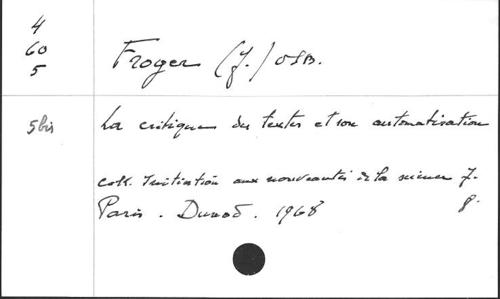 4
60
5
Froger (J.) OSB.
5bis
La critique des textes et son automatisation
coll. Initiation aux nouveautés de la science 7.
Paris. Dunod. 1968
8.